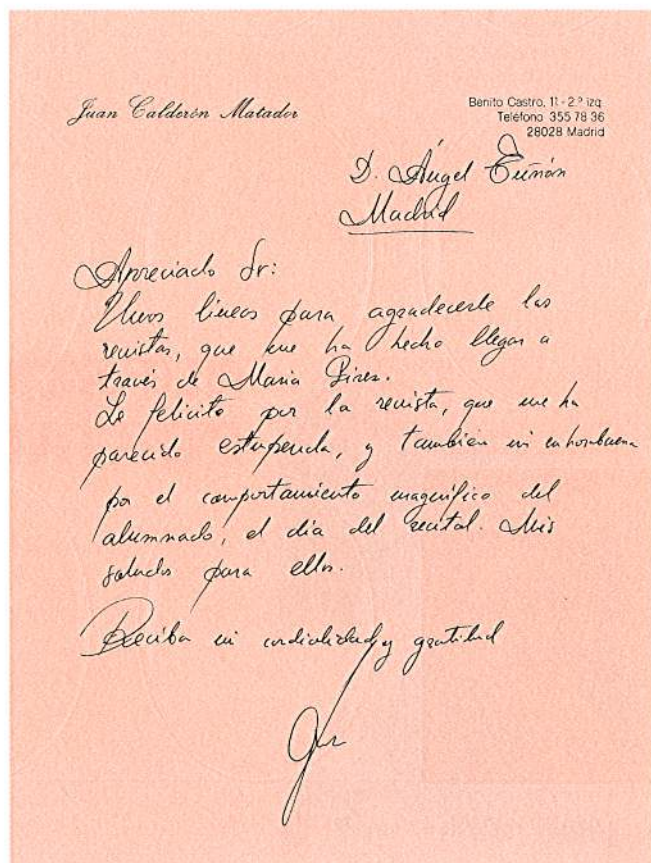 Juan Calderón Matador
Benito Castro, 11 - 2.º izq.
Teléfono 355 78 36
28028 Madrid
D. Ángel
Madrid
Apreciado Sr:
Unas líneas para agradecerle las
revistas, que me ha hecho llegar a
través de María Pires.
Le felicito por la revista, que me ha
parecido estupenda, y también mi enhorabuena
por el comportamiento magnífico del
alumnado, el día del recital. Mis
saludos para ellos.
Reciba mi cordialidad y gratitud